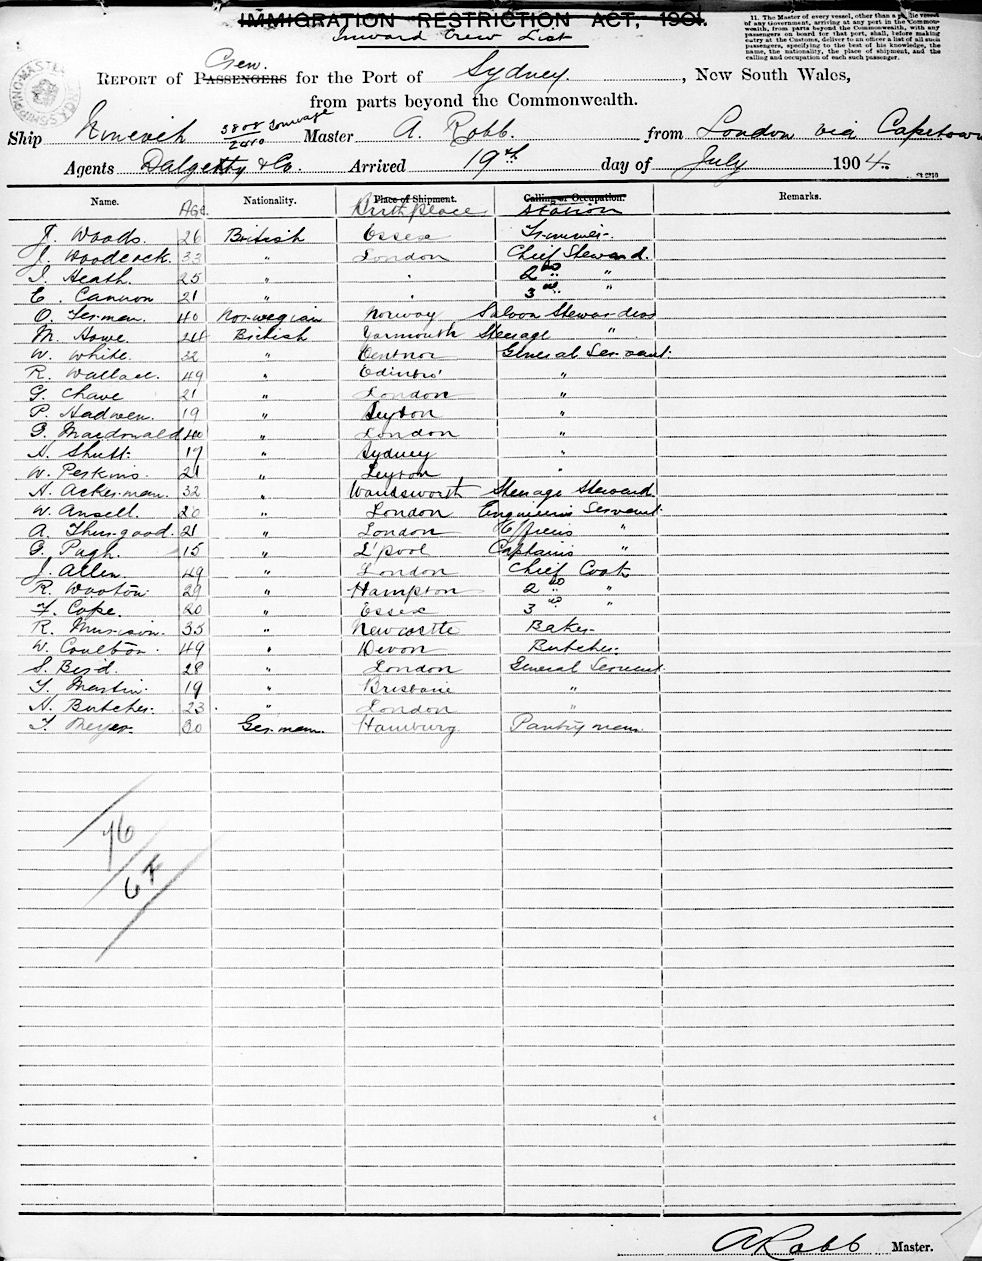 IMMIGRATION RESTRICTION ACT, 1901.
Inward Crew List
11. The Master of every vessel, other than a public vessel of any Government, arriving at any port in the Commonwealth, from parts beyond the Commonwealth, with any passengers on board for that port, shall, before making entry at the Customs, deliver to an officer a list of all such passengers, specifying to the best of his knowledge, the name, the nationality, the place of shipment, and the calling and occupation of each such passenger.
Crew.
REPORT OF PASSENGERS for the Port of Sydney, New South Wales,
from parts beyond the Commonwealth.
Ship Nineveh 3808 2410 Tonnage Master A. Robb. from London via Capetown
Agents Dalgetty & Co. Arrived 19th day of July 1904
Name. Age. Nationality. Place of Shipment. Birthplace Calling or Occupation. Station Remarks.
J. Woods. 26 British Essex Trimmer.
J. Woodcock. 33 " London Chief Steward.
Heath. 25 " " 2nd "
E. Cannon 21 " " 3rd "
O. 40 Norwegian Norway Saloon Stewardess
M. Howe. British Yarmouth Steerage "
W. White. 32 " Ventnor General Servant.
R. Wallace. 49 " Edinbro' "
G. Chave 21 " London "
P. 19 " Leyton "
Macdonald 40 " London "
Shutt. 17 " Sydney "
W. Perkins. 21 " Leyton "
A. Ackerman. 32 " Wandsworth Steerage Steward
W. Ansell. 20 " London Engineers Servant
A. Thurgood. 21 " London Officers "
G. Pugh. 15 " L'pool Captains "
J. Allen. 49 " London Chief Cook
R. Wooton 29 " Hampton 2nd "
F. Cope. 20 " Essex 3rd "
R. Murison. 35 " Newcastle Baker.
W. Coulton. 49 " Devon Butcher.
S. Bird. 28 " London General Servant.
Martin. 19 " Brisbane "
H. Butcher. 23 " London "
Meyer. 30 German. Hamburg Pantryman
76
6 F
A Robb Master.